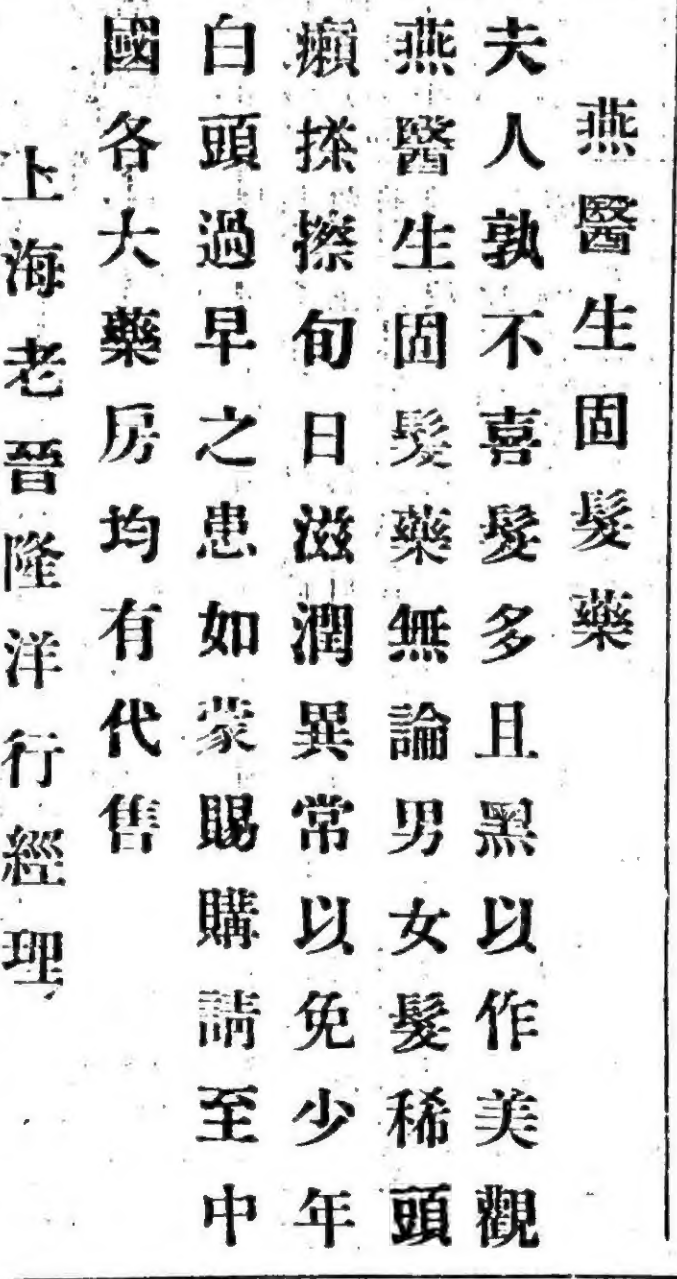 燕醫生固髮藥
夫人孰不喜髮多且黑以作美觀
燕醫生固髮藥無論男女髮稀頭
癩搽擦旬日滋潤異常以免少年
白頭過早之患如蒙賜購請至中
國各大藥房均有代售
上海老晉隆洋行經理